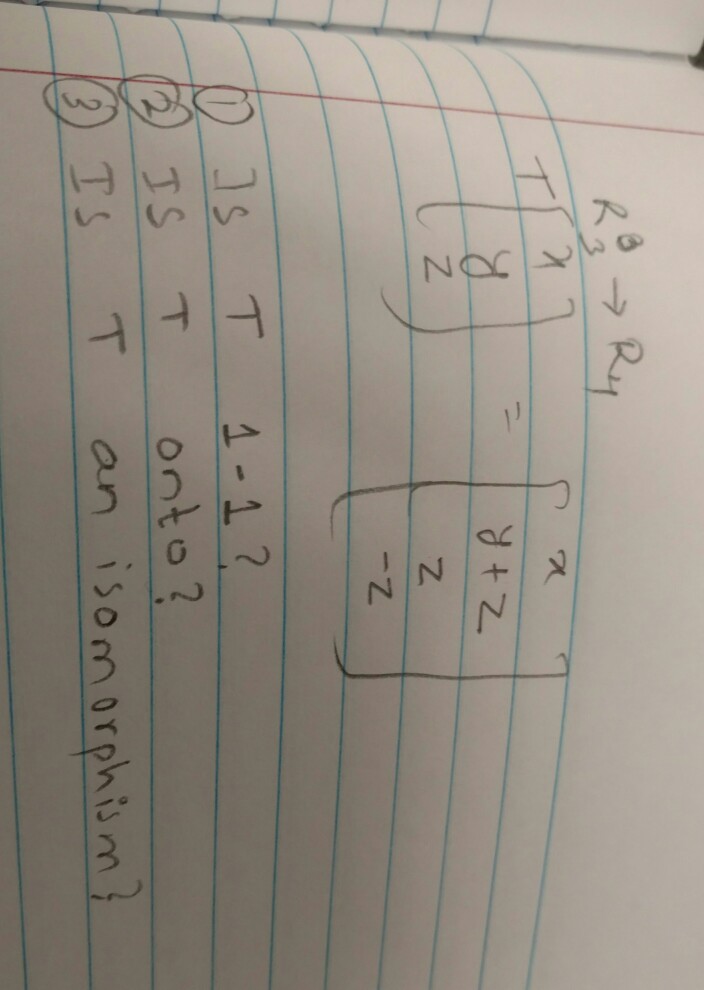 R3 → R4
T [x y z] = [x y+z z -z]
① Is T 1-1?
② IS T onto?
③ IS T an isomorphism?